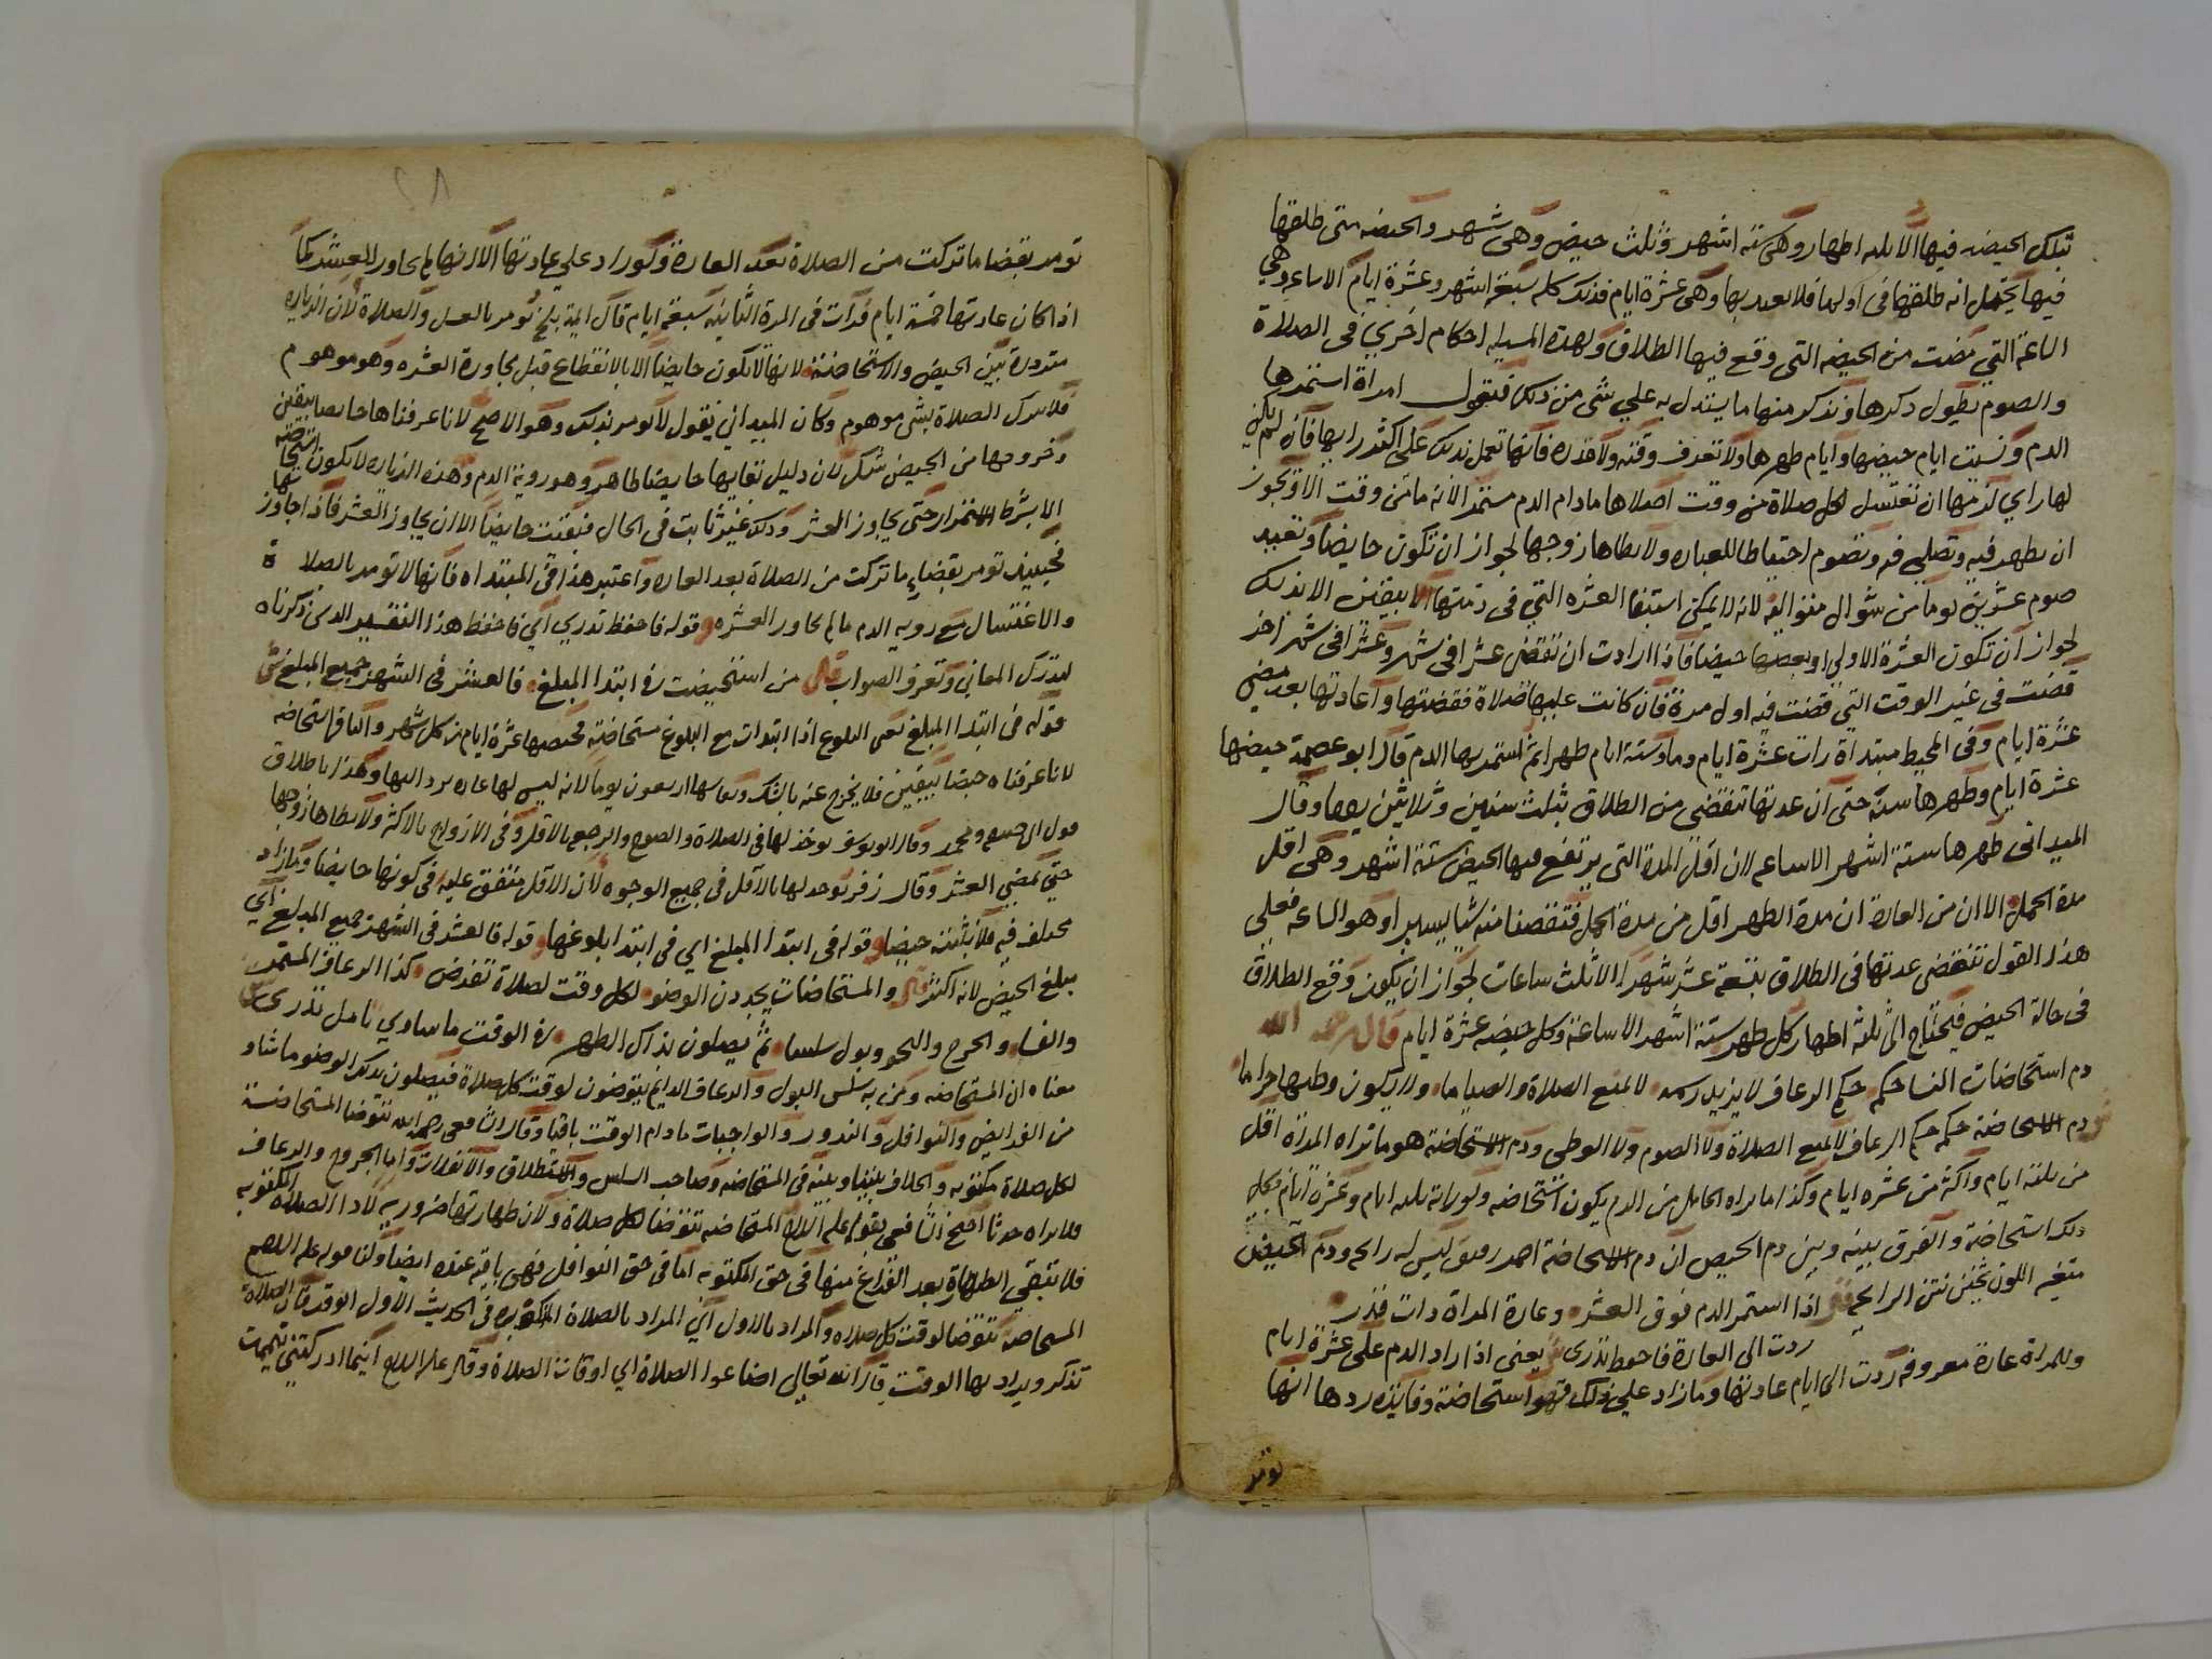 تلك الحيضه فيها الا ثلثه اطهار وهى سته اشهر وثلث حيض وهى شهر والحيضه متى طلقها
فيها يحتمل انه طلقها فى اولها فلا تعتد بها وهى عشرة ايام فذلك كله سبعة اشهر وعشرة ايام الا ساعه وهي
الساعة التي مضت من الحيضه التى وقع فيها الطلاق ولهذه المسيله احكام اخري فى الصلاة
والصوم يطول ذكرها ونذكر منها ما يستدل به علي شى من ذلك فنقول امراة استمر بها
الدم ونسيت ايام حيضها وايام طهرها ولا تعرف وقته ولا قدره فانها تعمل بذلك على اكثر رايها فان لم يكن
لها راي لزمها ان تغتسل لكل صلاة من وقت اصلاها ما دام الدم مستمر الانه ما من وقت الا ويجوز
ان يطهر فيه وتصلي فيه وتصوم احتياطا للعباده ولا يطاها زوجها لجواز ان تكون حايضا وتعيد
صوم عشرين يوما من شوال متواليه لانه لا يمكن استيفا العشره التي فى ذمتها الا بيقين الا بذلك
لجواز ان تكون العشرة الاولى او بعضها حيضا فاذا ارادت ان تقضى عشرا فى شهر وعشرا فى شهر اخر
قضت فى غير الوقت التي قضت فيه اول مرة فان كانت عليها صلاة فقضتها واعادتها بعد مضي
عشرة ايام وفى المحيط مبتداة رات عشرة ايام دما وستة ايام طهرا ثم استمر بها الدم قال ابو عصمة حيضها
عشرة ايام وطهرها سنة حتى ان عدتها تنقضى من الطلاق بثلث سنين وثلاثين يوما وقال
الميدانى طهرها ستة اشهر الا ساعه لان اقل المدة التى يرتفع فيها الحيض ستة اشهر وهى اقل
مدة الحمل الا ان من العادة ان مدة الطهر اقل من مدة الحمل فنقصنا منه شيا يسيرا وهو الساعه فعلى
هذا القول تنقضى عدتها فى الطلاق بتسعة عشر شهرا الا ثلث ساعات لجواز ان يكون وقع الطلاق
فى حالة الحيض فيحتاج الى ثلثه اطهار كل طهر ستة اشهر الا ساعة وكل حيضه عشرة ايام قال رحمه الله
دم استحاضات النسا حكمه حكم الرعاف لا يزيل رسمه لا لمنع الصلاة والصياما ولا يكون وطيها حراما
دم الاستحاضة حكمه حكم الرعاف لا يمنع الصلاة ولا الصوم ولا الوطى ودم الاستحاضة هو ما تراه المراة اقل
من ثلثة ايام واكثر من عشره ايام وكذا ما تراه الحامل من الدم يكون استحاضه ولو راته ثلثه ايام وعشرة ايام فكل
ذلك استحاضة والفرق بينه وبين دم الحيض ان دم الاستحاضة احمر رقيق ليس له رايحه ودم الحيض
متغير اللون ثخين نتن الرايحه قال اذا استمر الدم فوق العشر وعادة المراة دات قدر
ردت الى العادة فاحفظ تدرى يعنى اذا زاد الدم على عشرة ايام
وللمراة عادة معروفه ردت الى ايام عادتها وما زاد علي ذلك فهو استحاضة وفايدة ردها انها
تومر
تومر بقضا ما تركت من الصلاة بعد العادة ولو زاد على عادتها الا انها لم يجاوز العشر كما
اذا كان عادتها خمسة ايام فرات فى المرة الثانيه سبعة ايام قال ايمة بلخ تومر بالغسل والصلاة لان الزياده
مترددة بين الحيض والاستحاضة لانها لا تكون حايضا الا بالانقطاع قبل مجاوزة العشره وهو موهوم
فلا تترك الصلاة بشى موهوم وكان الميداني يقول لا تومر بذلك وهو الاصح لانا عرفناها حايضا بيقين
وخروجها من الحيض شك لان دليل بقايها حايضا ظاهر وهو روية الدم وهذه الزياده لا يكون استحاضة
الا بشرط الاستمرار حتى يجاوز العشر وذلك غير ثابت فى الحال فبقيت حايضا الا ان يجاوز العشر فاذا جاوز
فحينيذ تومر بقضاء ما تركت من الصلاة بعد العاده واعتبر هذا فى المبتداه فانها لا تومر بالصلاة
والاغتسال مع رويه الدم ما لم يجاوز العشره وقوله فاحفظ تدري اي فاحفظ هذا التفسير الدى ذكرناه
لتدرك المعانى وتعرف الصواب قال من استحيضت فى ابتدا المبلغ فالعشر فى الشهر جميع المبلغ
قوله فى ابتدا المبلغ يعنى البلوغ اذا ابتدات مع البلوغ مستحاضة فحيضها عشرة ايام من كل شهر والباقى استحاضه
لانا عرفناه حيضا بيقين فلا يخرج عنه بالشك ونفاسها اربعون يوما لانه ليس لها عاده ترد اليها وهذا باطلاق
قول ابى حنيفه ومحمد وقال ابو يوسف يوخذ لها فى الصلاة والصوم والرجعه بالاقل وفى الازواج بالاكثر ولا يطاها زوجها
حتى تمضي العشر وقال زفر يوخذ لها بالاقل فى جميع الوجوه لان الاقل متفق عليه فى كونها حايضا وما زاد
مختلف فيه فلا نثبته حيضا وقوله فى ابتدا المبلغ اي فى ابتدا بلوغها وقوله فالعشر فى الشهر جميع المبلغ اي
مبلغ الحيض لانه اكثر قال والمستحاضات يجددن الوضو لكل وقت لصلاة تفرض كذا الرعاف المستمر
والفساء والجرح والنحو وبول سلسا ثم يصلون بذاك الطهر فى الوقت ما ساوي تامل تدرى
معناه ان المستحاضه ومن به سلس البول والرعاف الدايم يتوضون لوقت كل صلاة فيصلون بذلك الوضو ما شاو
من الفرايض والنوافل والندور والواجبات ما دام الوقت باقيا وقال الشافعى رحمه الله تتوضا المستحاضة
لكل صلاة مكتوبه والخلاف بيننا وبينه فى المستحاضه وصاحب السلس والاستطلاق والانفلات واما الجروح والرعاف
فلا يراه حدثا احتج الشافعى بقوله عليه السلام المستحاضه تتوضا لكل صلاة ولان طهارتها ضروريه لادا الصلاة المكتوبه
فلا تبقى الطهارة بعد الفراغ منها فى حق المكتوبه اما فى حق النوافل فهى باقيه عنده ايضا ولنا قوله عليه السلام
المستحاضة تتوضا لوقت كل صلاه والمراد بالاول اي المراد بالصلاة المذكوره فى الحديث الاول الوقت فان الصلاة
تذكر ويراد بها الوقت قال الله تعالى اضاعوا الصلاة اي اوقات الصلاة وقال عليه السلام اينما ادركتنى تيممت